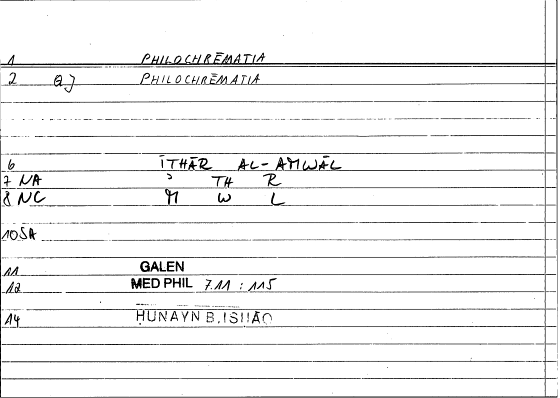 1 PHILOCHRĒMATIA
2 QJ PHILOCHRĒMATIA
6 ĪTHĀR AL-AMWĀL
7 NA ʾ TH R
8 NC M W L
10 SA
11 GALEN
12 MED PHIL 7.11 : 115
14 ḤUNAYN B. ISḤĀQ